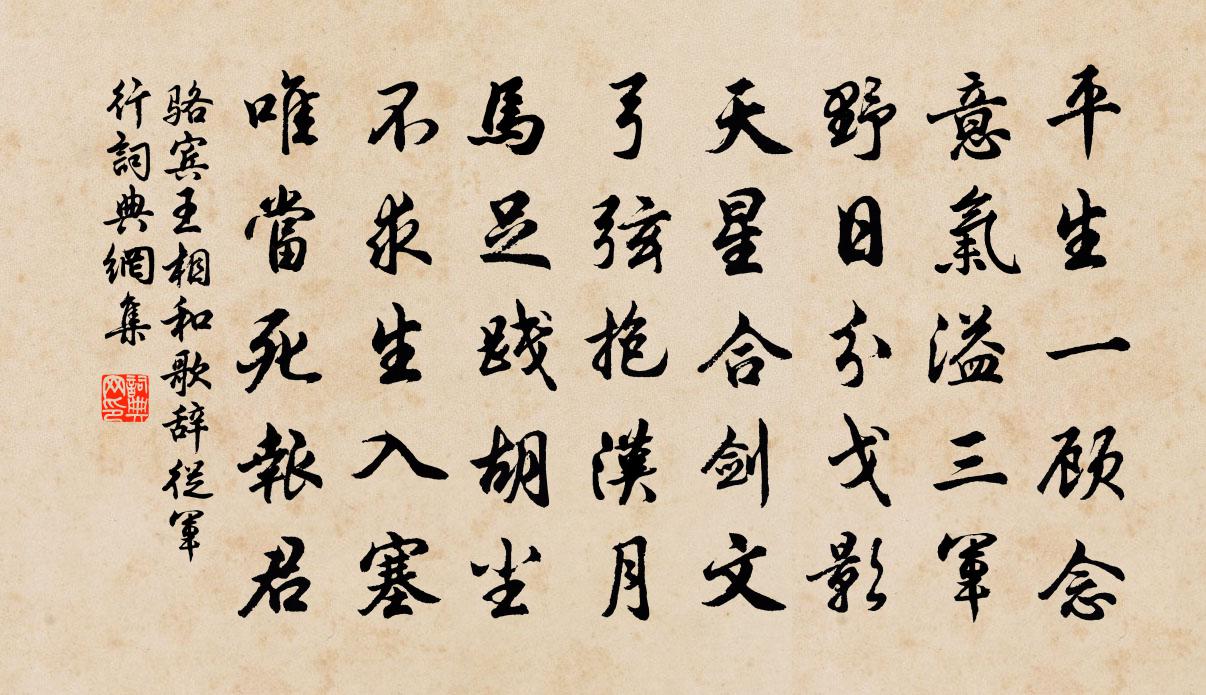 平生一顾念
意氣溢三軍
野日分戈影
天星合劍文
弓弦抱漢月
馬足踐胡尘
不求生入塞
唯當死報君
骆宾王相和歌辞從軍
行詞典網集
詞典
网印